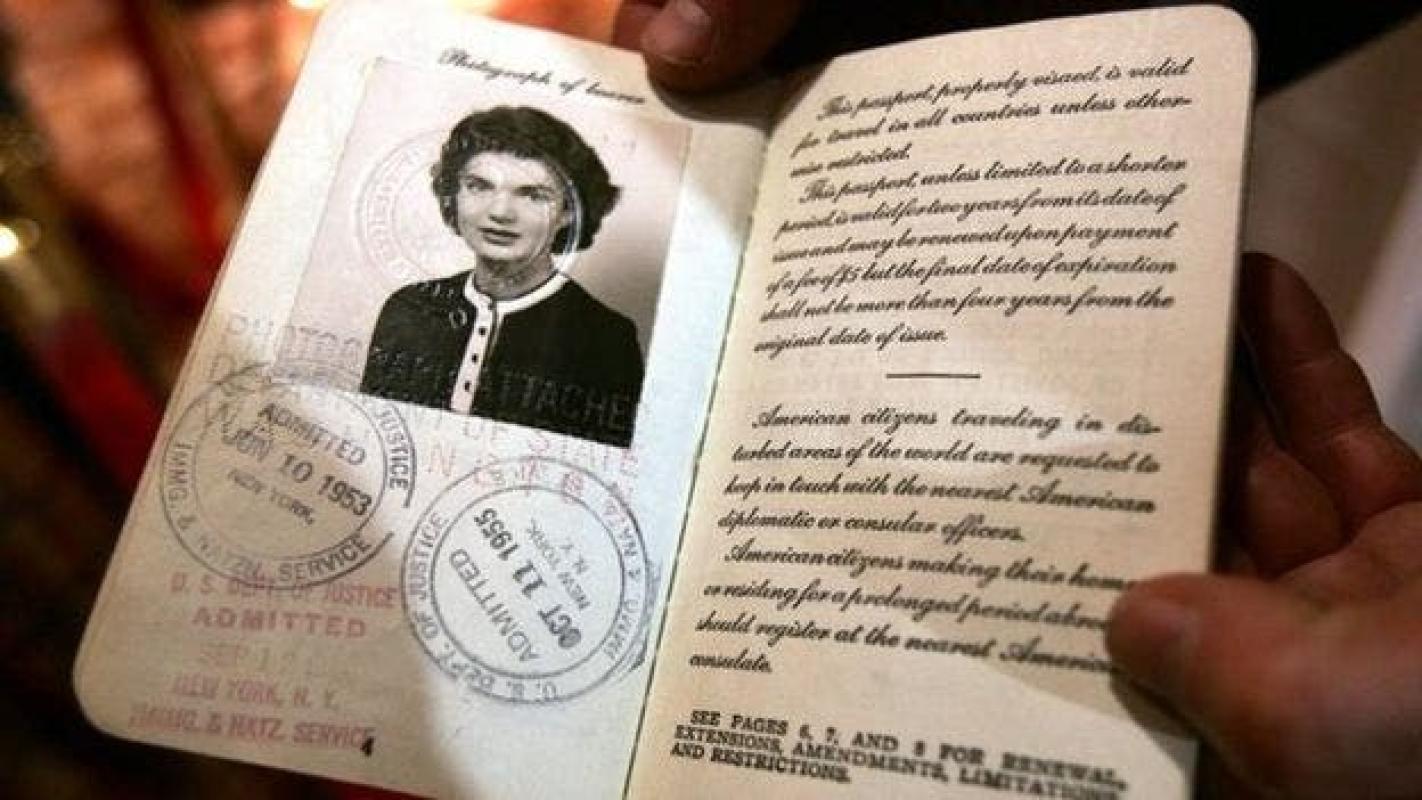 Photograph of bearer
PHOTOGRAPH ATTACHED
DEPARTMENT OF STATE
ADMITTED
JUN 10 1953
NEW YORK,
JUSTICE
IMMG. & NATZN. SERVICE
U. S. DEPT. OF JUSTICE
ADMITTED
OCT 11 1955
NEW YORK,
N. Y.
U. S. DEPT. OF JUSTICE
ADMITTED
SEP 1
NEW YORK, N. Y.
IMMIG. & NATZ. SERVICE
4
This passport, properly visaed, is valid
for travel in all countries unless other-
wise restricted.
This passport, unless limited to a shorter
period, is valid for two years from its date of
issue and may be renewed upon payment
of a fee of $5 but the final date of expiration
shall not be more than four years from the
original date of issue.
American citizens traveling in dis-
turbed areas of the world are requested to
keep in touch with the nearest American
diplomatic or consular officers.
American citizens making their home
or residing for a prolonged period abroa
should register at the nearest America
consulate.
SEE PAGES 6, 7, AND 8 FOR RENEWAL,
EXTENSIONS, AMENDMENTS, LIMITATIONS
AND RESTRICTIONS.